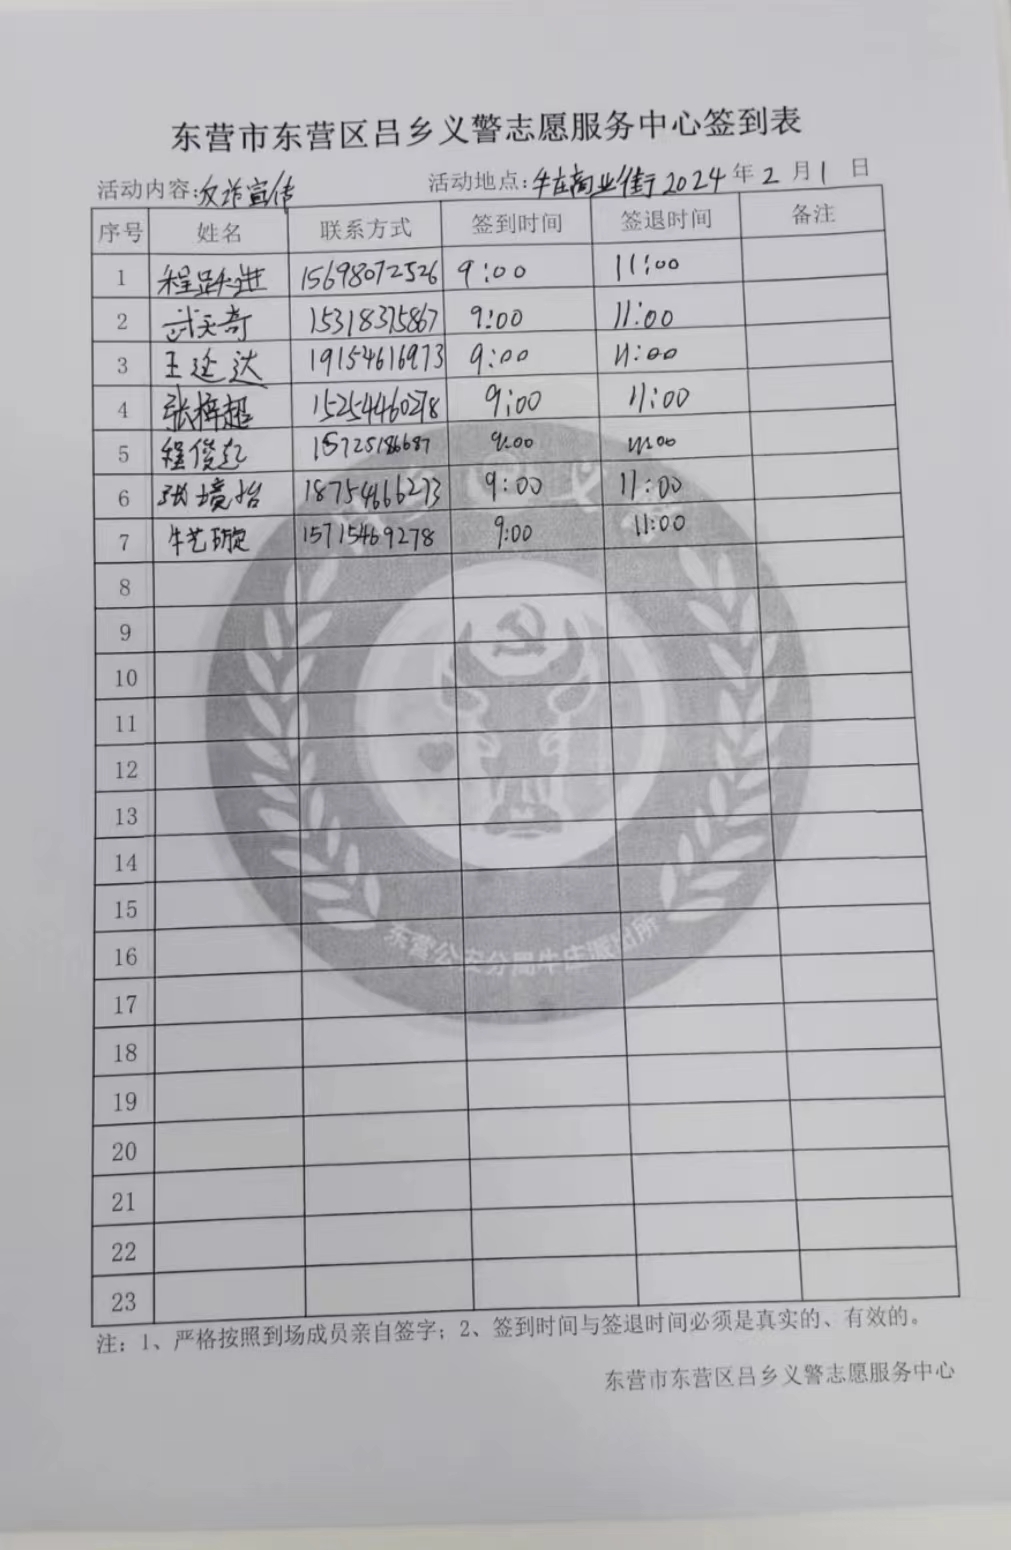 东营市东营区吕乡义警志愿服务中心签到表
活动内容:反诈宣传 活动地点:牛庄商业街 2024年2月1日
序号 姓名 联系方式 签到时间 签退时间 备注
1 程跃进 15698072526 9:00 11:00
2 武天奇 15318375867 9:00 11:00
3 王延达 19154616973 9:00 11:00
4 张梓超 15254460278 9:00 11:00
5 程俊彪 15725186687 9:00 11:00
6 张境怡 18754666273 9:00 11:00
7 牛艺璇 15715469278 9:00 11:00
8
9
10
11
12
13
14
15
16
17
18
19
20
21
22
23
东营公安分局牛庄派出所
注:1、严格按照到场成员亲自签字;2、签到时间与签退时间必须是真实的、有效的。
东营市东营区吕乡义警志愿服务中心